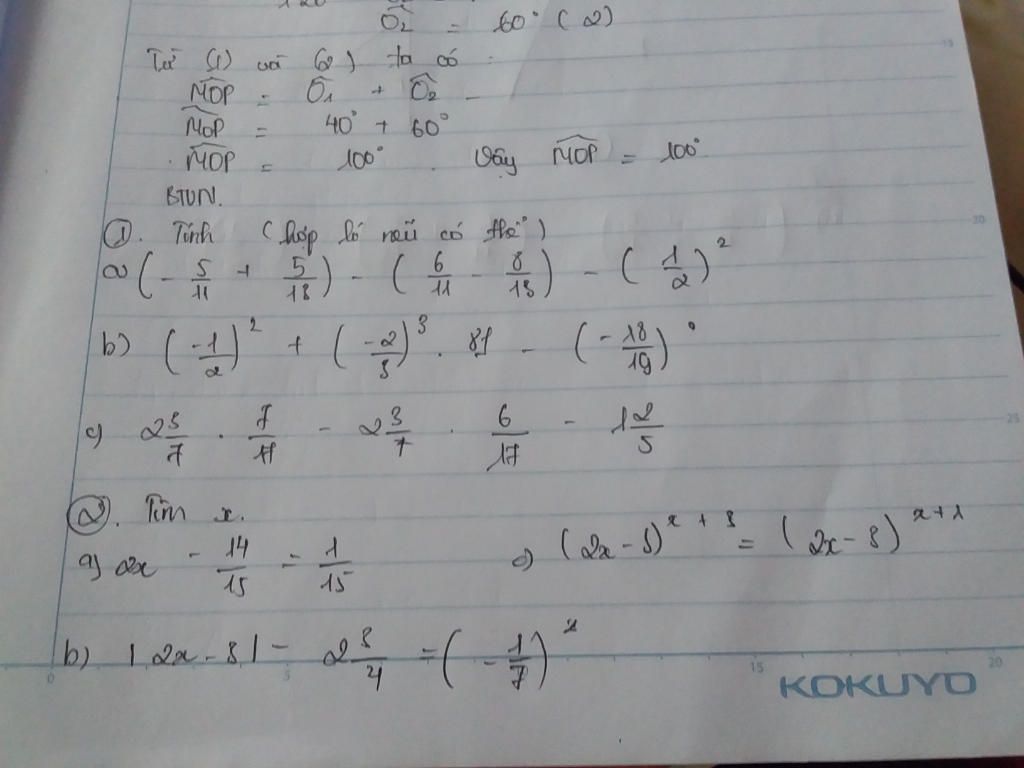 Ô₂ = 60° (2)
Từ (1) và (2) ta có :
MOP = Ô₁ + Ô₂
MOP = 40° + 60°
MOP = 100°. Vậy MOP = 100°
BTVN.
①. Tính (hợp lí nếu có thể)
a) (-5/11 + 5/13) - (6/11 - 8/13) - (1/2)²
b) (-1/2)² + (-2/3)³ . 81 - (-18/19)⁰
c) 2 3/7 . 7/11 - 2 3/7 . 6/17 - 1 2/5
②. Tìm x.
a) 2x - 14/15 = 1/15 c) (2x - 3)^(x + 3) = (2x - 3)^(x + 1)
b) |2x - 3| - 2 3/4 = (-1/7)
15
20
25
30
KOKUYO